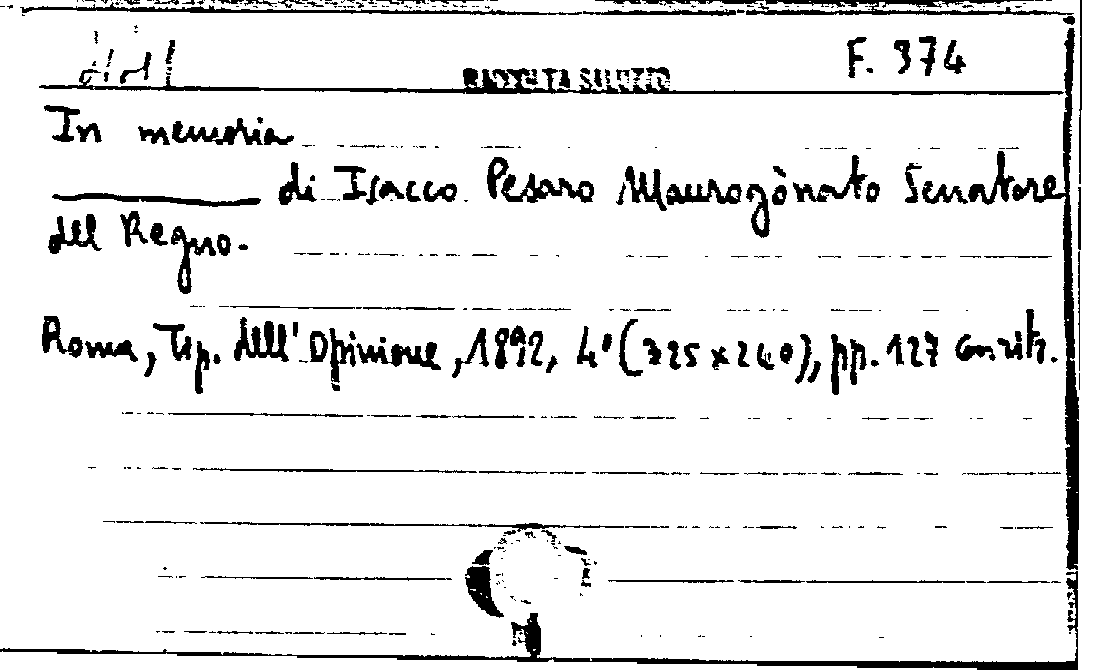 RACCOLTA SALUZZO
F. 374
In memoria
di Isacco Pesaro Maurogònato Senatore
del Regno.
Roma, Tip. dell'Opinione, 1892, 4° (325 x 240), pp. 127 con ritr.